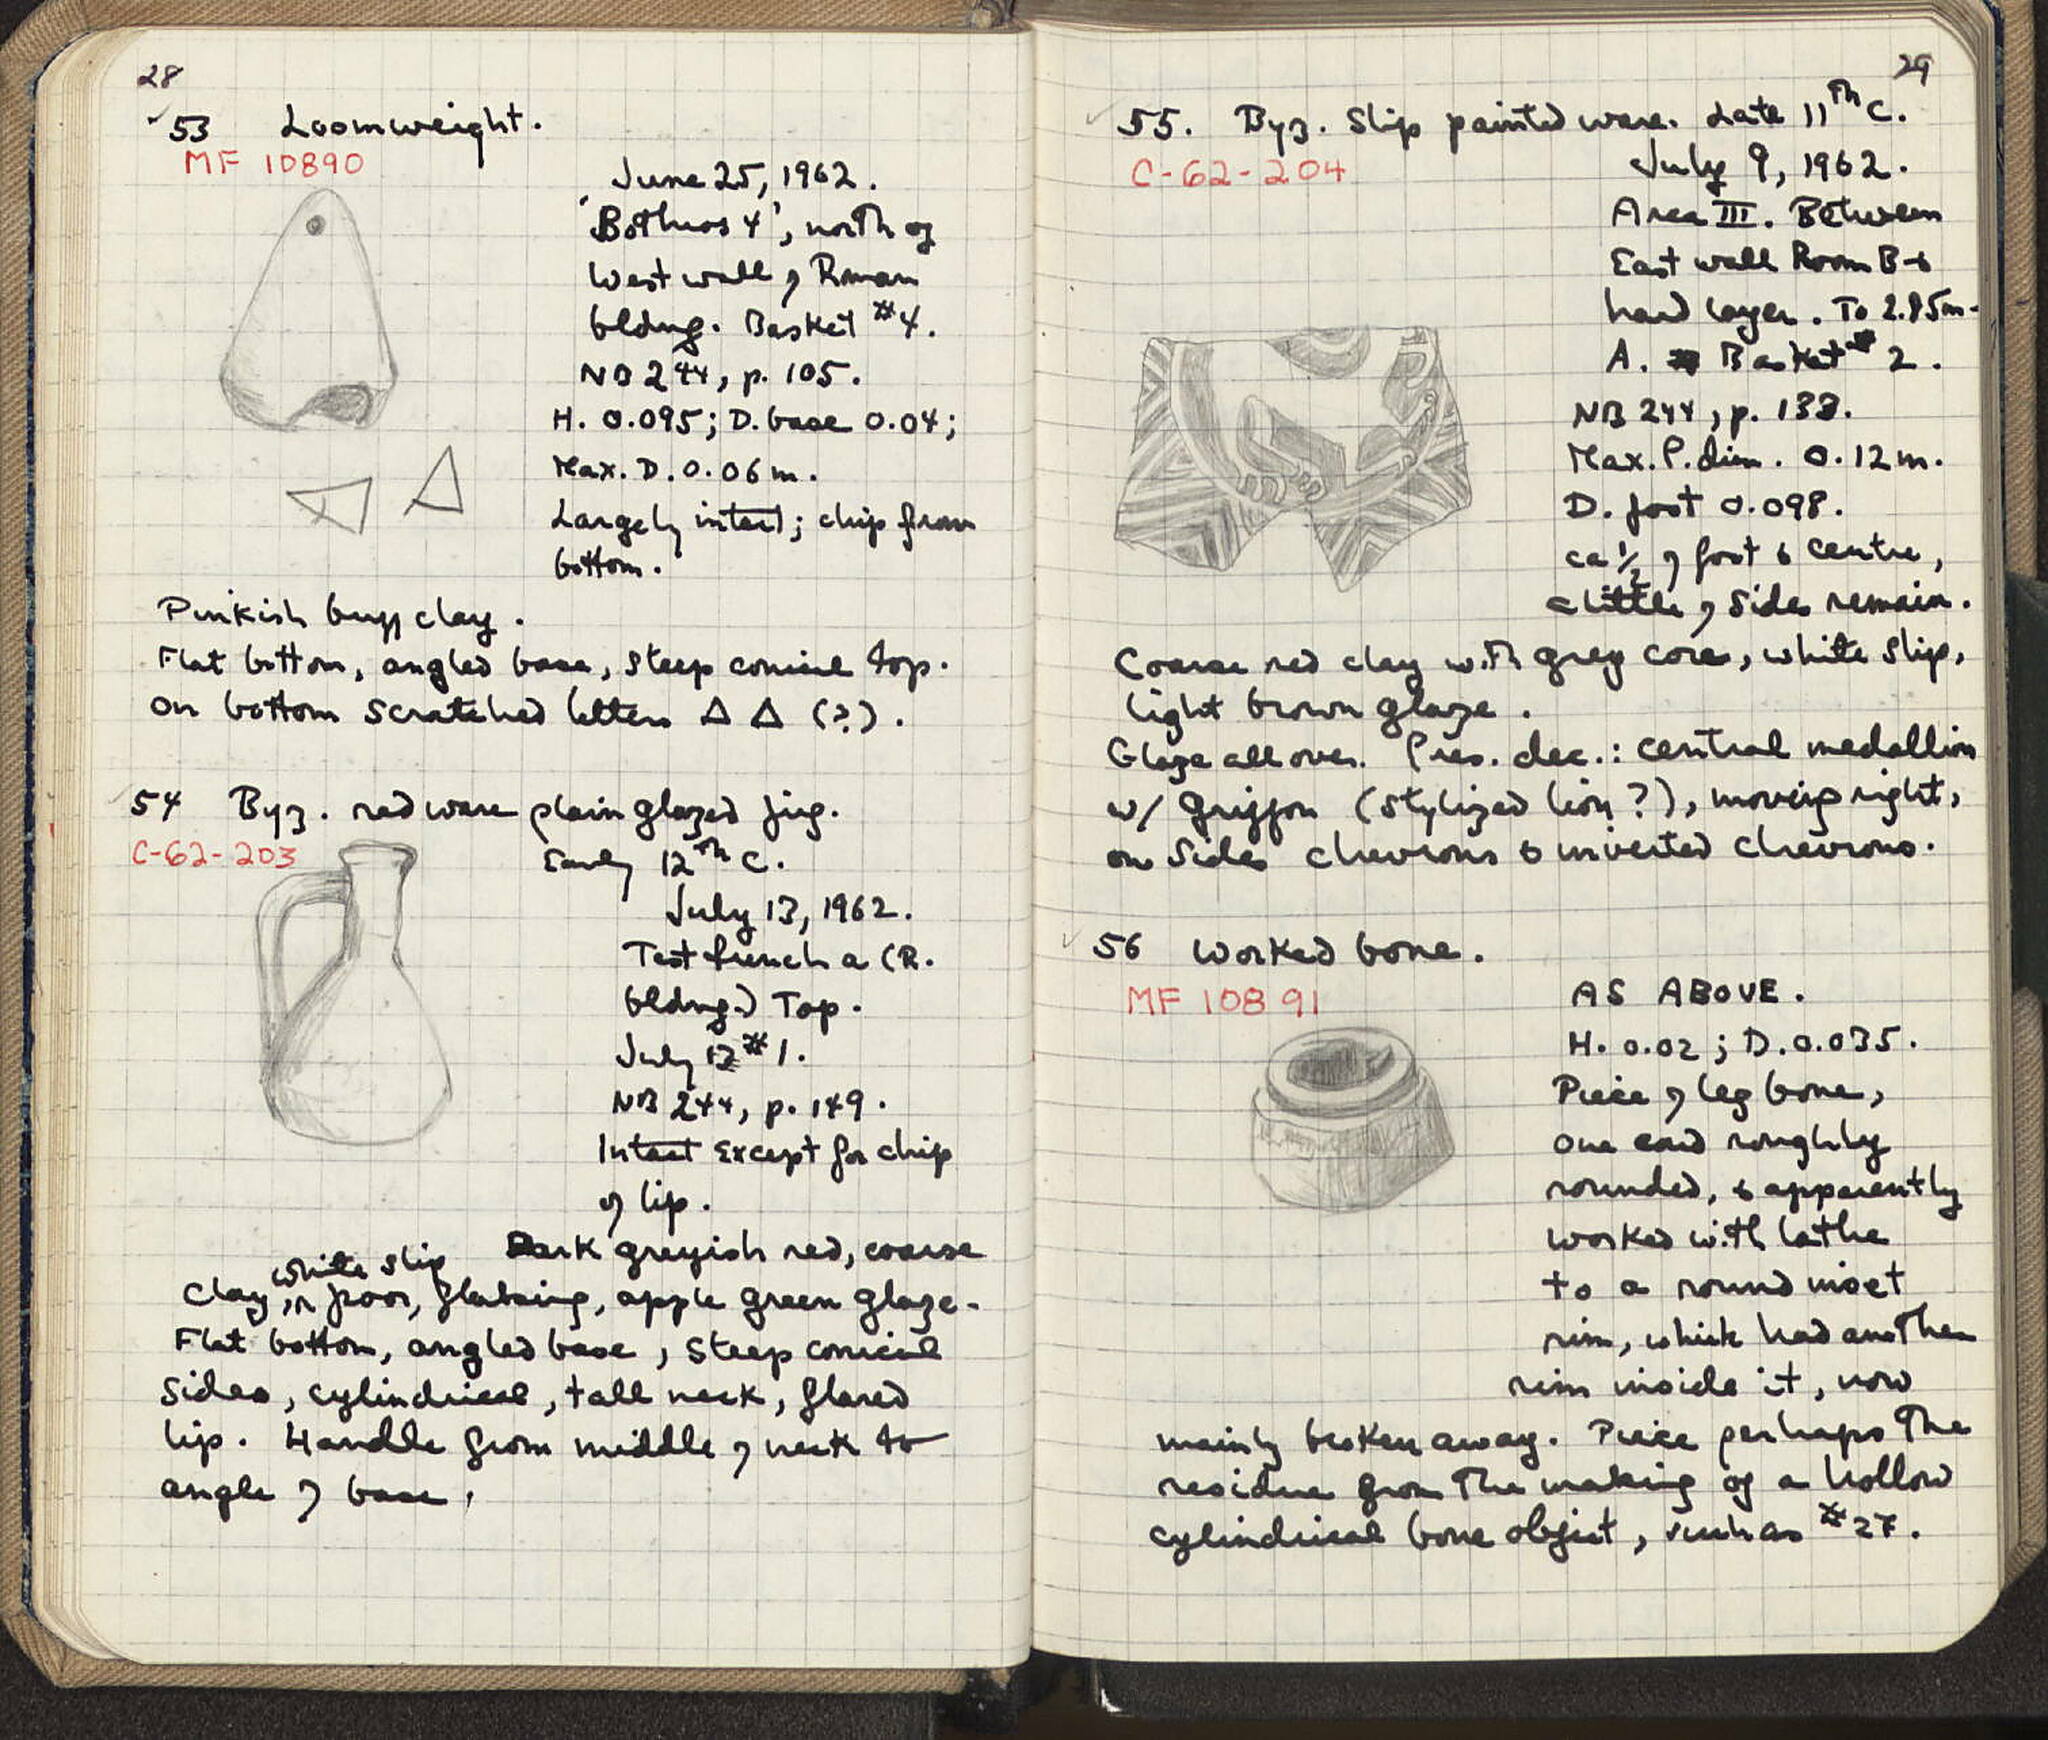 28
53 Loomweight.
MF 10890
June 25, 1962.
'Bothros 4', north of
West wall of Roman
bldng. Basket #4.
NB 244, p. 105.
H. 0.095; D. base 0.04;
Max. D. 0.06 m.
Largely intact; chip from
bottom.
Pinkish buff clay.
Flat bottom, angled base, steep conical top.
On bottom scratched letters Δ Δ (?).
54 Byz. red ware plain glazed jug.
C-62-203
Early 12th C.
July 13, 1962.
Test trench a (R.
bldng.) Top.
July 12 #1.
NB 244, p. 149.
Intact except for chip
of lip.
Dark greyish red, coarse
clay, white slip, poor, flaking, apple green glaze.
Flat bottom, angled base, steep conical
sides, cylindrical, tall neck, flared
lip. Handle from middle of neck to
angle of base.
29
55. Byz. Slip painted ware. Late 11th C.
C-62-204
July 9, 1962.
Area III. Between
East wall Room B &
hard layer. To 2.85m.
A. Basket # 2.
NB 244, p. 138.
Max. P. dim. 0.12 m.
D. foot 0.098.
ca 1/2 of foot & centre,
a little of sides remain.
Coarse red clay with grey core, white slip,
light brown glaze.
Glaze all over. Pres. dec.: central medallion
w/ griffon (stylized lion?), moving right,
on sides chevrons & inverted chevrons.
56 Worked bone.
MF 10891
AS ABOVE.
H. 0.02; D. 0.035.
Piece of leg bone,
one end roughly
rounded, & apparently
worked with lathe
to a round inset
rim, which had another
rim inside it, now
mainly broken away. Piece perhaps the
residue from the making of a hollow
cylindrical bone object, such as #27.